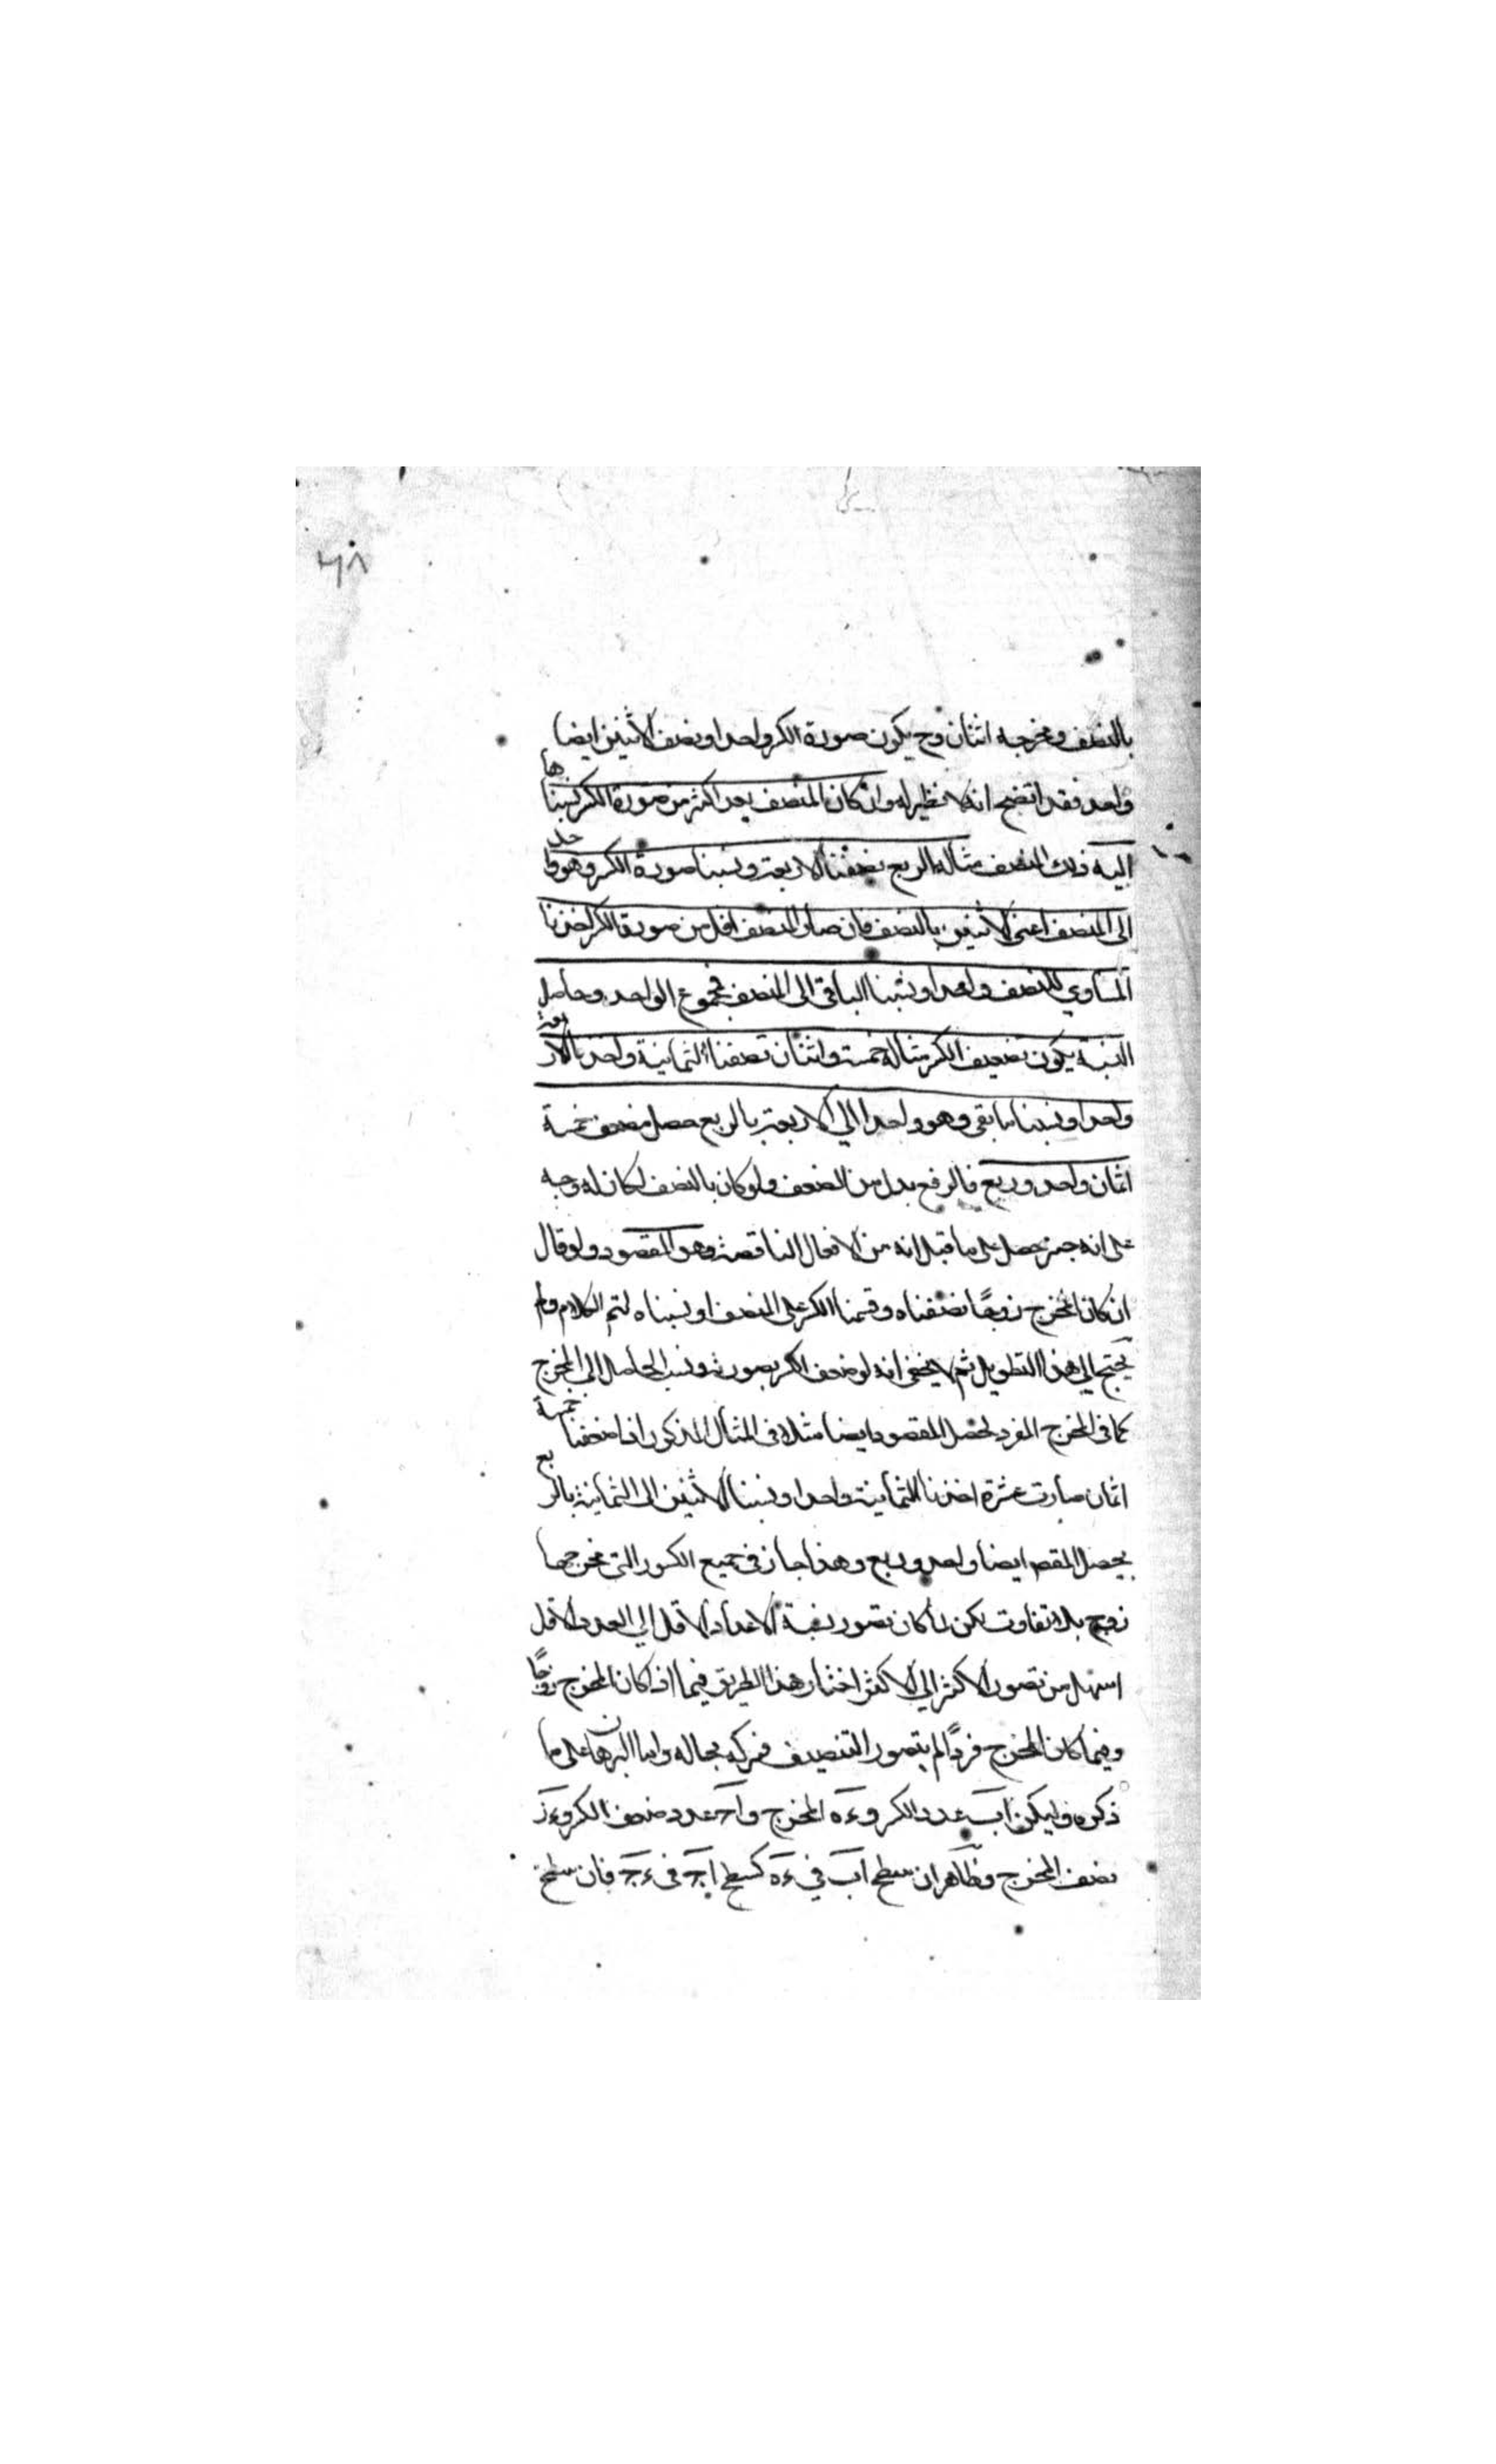 ٤٨
بالنصف ومخرجه اثنان وح يكون صورة الكسر واحدا ونصف الاثنين ايضا
واحد فقد اتضح انه لا نظير له وان كان المنصف بعد اكثر من صورة الكسر نسبناها
اليه ذلك المنصف مثاله الربع نصفنا الاربعة ونسبنا صورة الكسر وهو واحد
الى المنصف اعنى الاثنين بالنصف فان صار المنصف اقل من صورة الكسر اخذنا
المساوي للنصف واحدا ونسبنا الباقى الى المنصف فمجموع الواحد وحاصل
النسبة يكون تضعيف الكسر مثاله خمسة واثنان نصفنا الثمانية واخذنا بالاربعة
واحدا ونسبنا ما بقى وهو واحدا الي الاربعة بالربع حصل مضعف خمسة
اثمان واحد وربع فالرفع بدل من الضعف ولو كان بالنصف لكان له وجه
على انه خبر حصل على ما قيل انه من الافعال الناقصة وهو المقصود ولو قال
ان كان المخرج زوجًا نصفناه وقسمنا الكسر على المنصف او نسبناه لتم الكلام ولم
يحتج الي هذا التطويل ثم لا يخفى انه لو ضعف الكسر بصورته ونسب الحاصل الى المخرج
كما فى المخرج المفرد لحصل المقصود ايضا مثلا فى المثال المذكور اذا ضعفنا خمسة
اثمان صارت عشرة اخذنا للثمانية واحدا ونسبنا الاثنين الى الثمانية بالربع
يحصل المقصد ايضا واحد وربع وهذا جاز فى جميع الكسور التى مخرجها
زوج بلا تفاوت لكن لما كان تصور نسبة الاعداد الاقل الي العدد الاقل
اسهل من تصور الاكثر الي الاكثر اختار هذا الطريق فيما اذا كان المخرج زوجًا
وفيما كان المخرج فردًا لم يتصور التنصيف فتركه بحاله واما البرهان على ما
ذكره فليكن اب عدد الكسر و ءه المخرج و آحـ عدد ضعف الكسر و ءز
نصف المخرج وظاهر ان سطح اب في ءه كسطح اجـ فى ءجـ فان سطح